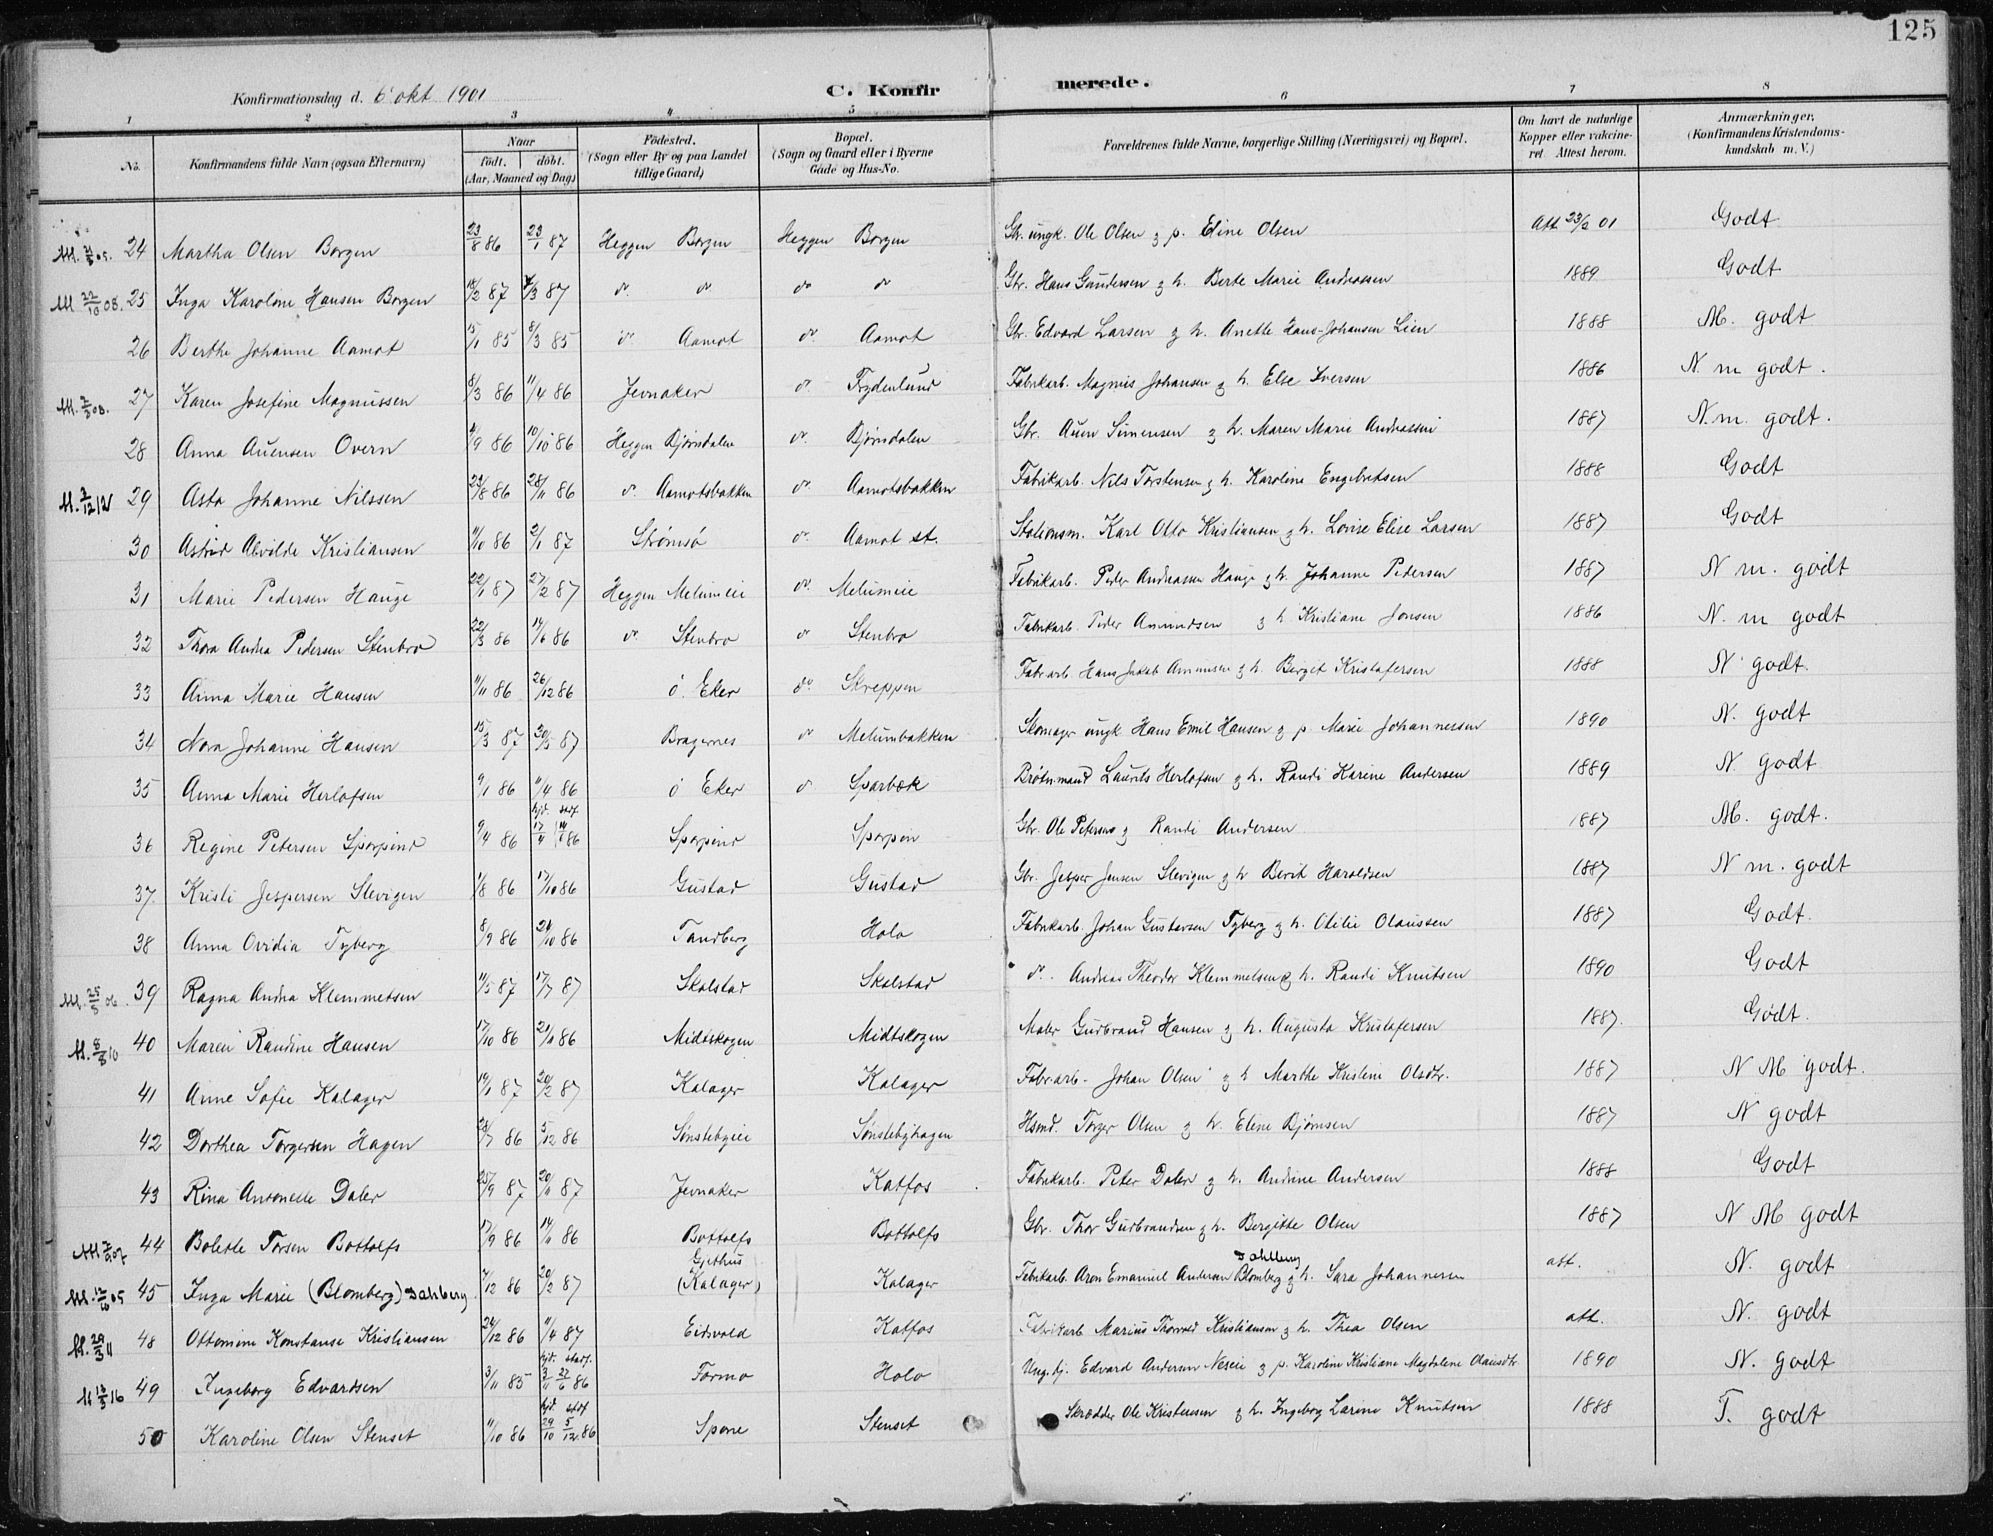 125
Konfirmationsdag d. 6' okt 1901 C. Konfirmerede.
1 2 3 4 5 6 7 8
No. Konfirmandens fulde Navn (ogsaa Efternavn) Naar födt. döbt. (Aar, Maaned og Dag) Födested. (Sogn eller By og paa Landet tillige Gaard) Bopæl. (Sogn og Gaard eller i Byerne Gade og Hus-No. Forældrenes fulde Navne, borgerlige Stilling (Næringsvei) og Bopæl. Om havt de naturlige Kopper eller vakcineret. Attest herom. Anmærkninger. (Konfirmandens Kristendomskundskab m. V.)
24 Martha Olsen Borgen 23/8 86 23/1 87 Heggen Borgen Heggen Borgen Gbr. ungk. Ole Olsen g p. Eline Olsen Att 23/2 01 Godt
M 22/10 08. 25 Inga Karoline Hansen Borgen 18/2 87 /3 87 do do do do Gbr. Hans Gundersen g h. Berte Marie Andreassen 1889 Godt
26 Berthe Johanne Aamot 15/1 85 8/3 85 do Aamot do Aamot Gbr. Edvard Larsen g h. Anette Hans-Johansen Lien 1888 M. godt
27 Karen Josefine Magnussen 8/3 86 11/4 86 Jevnaker do Frydenlund Fabrikarb. Magnus Johansen g h. Else Iversen 1886 N m godt.
28 Anna Auensen Overn /9 86 10/10 86 Heggen Bjørndalen do Bjørndalen Gbr. Auen Simensen g h. Maren Marie Andreassen 1887 N. m. godt.
M. 7/12 12 29 Asta Johanne Nilssen 23/8 86 28/11 86 do Aamotsbakken do Aamotsbakken Fabrikarb. Nils Torstensen g h. Karoline Engebretsen 1888 Godt
30 Astrid Alvilde Kristiansen 11/10 86 2/1 87 Strømsø do Aamot st. Stationsm. Karl Otto Kristiansen g h. Lovise Elise Larsen 1887 Godt
31 Marie Pedersen Hauge 22/1 87 27/2 87 Heggen Melumeie do Melumeie Fabrikarb. Peder Andreassen Hauge g h. Johanne Pedersen 1887 N m. godt
32 Thora Andrea Pedersen Stenbro 22/3 86 14/6 86 do Stenbro do Stenbro Fabrikarb. Peder Amundsen g h Kristiane Jonsen 1886 N. m godt
33 Anna Marie Hansen 11/11 86 26/12 86 ö. Eker do Skreppen Fabr.arb Hans Jakob Amundsen g h. Berget Kristofersen 1888 N godt.
34 Nora Johanne Hansen 15/3 87 30/5 87 Bragernes do Melumbakken Skomager ungk Hans Emil Hansen g p Marie Johannessen 1890 N. godt
35 Anna Marie Herlofsen 9/1 86 11/4 86 ö Eker do Sparbæk Brøtnmand Laurits Herlofsen g h. Randi Karine Andersen 1889 N godt
36 Regine Petersen Sparpind 9/4 86 hjd. 17/4 stadf 14/ 86 Sparpind Sparpin Gbr. Ole Petersen g Randi Andersen 1887 M. godt.
37. Kristi Jespersen Slevigen 1/8 86 17/10 86 Gustad Gustad Gbr. Jesper Jensen Slevigen g h Berit Haroldsen 1887 N m. godt
38 Anna Ovidia Tyberg 8/9 86 24/10 86 Tandberg Holo Fabrikarb. Johan Gustavsen Tyberg g h. Otilie Olaussen 1887 Godt.
M. 25/5 06. 39 Ragna Andrea Klemmetsen 11/5 87 17/7 87 Skalstad Skalstad do. Andreas Theodor Klemmetsen g h. Randi Knutsen 1890 Godt
M. 8/8 10 40 Maren Randine Hansen 17/10 86 21/11 86 Midtskogen Midtskogen Maler Gudbrand Hansen g h. Augusta Kristofersen 1887. Godt.
41 Anne Sofie Kalager 19/1 87 20/2 87 Kalager Kalager Fabr.arb. Johan Olsen g h Marthe Kristine Olsdtr. 1887 N M godt.
42 Dorthea Torgersen Hagen 28/7 86 5/12 86 Sønstebyeie Sønstebyhagen Hsmd. Torger Olsen g h. Eline Bjørnsen 1887 N godt
43 Rina Antonette Daler 25/9 87 20/11 87 Jevnaker Katfos Fabrikarb. Peter Daler g h. Andrine Andersen 1888 Godt
44 Bolette Torsen Bottolfs 17/9 86 14/11 86 Bottolfs Bottolfs Gbr. Thor Gudbrandsen g h. Bergitte Olsen 1887 N M godt
45 Inga Marie (Blomberg) Dahlberg 7/12 86 20/2 87 Gjethus (Kalager) Kalager Fabrikarb. Aron Emanuel Andersen Blomberg Dahlberg g h. Sara Johannesen att. N. godt
M. 29/3 11 48 Ottomine Konstanse Kristiansen 24/12 86 11/4 87 Eidsvold Katfos Fabrikarb Marius Thorvald Kristiansen g h. Thea Olsen att. N. godt
16 49 Ingeborg Edvardsen 3/11 85 hjd. 3/11 stadf. 27/6 86 Formo Holo Ung. tj. Edvard Andersen Neseie g p. Karoline Kristiane Magdalene Olausdtr 1890 N. godt
50 Karoline Olsen Stenset 11/10 86 hjd. 29/10 stdf 5/12 86 Spone Stenset Skrædder Ole Kristensen g h. Ingeborg Larine Knutsen 1888 T. godt